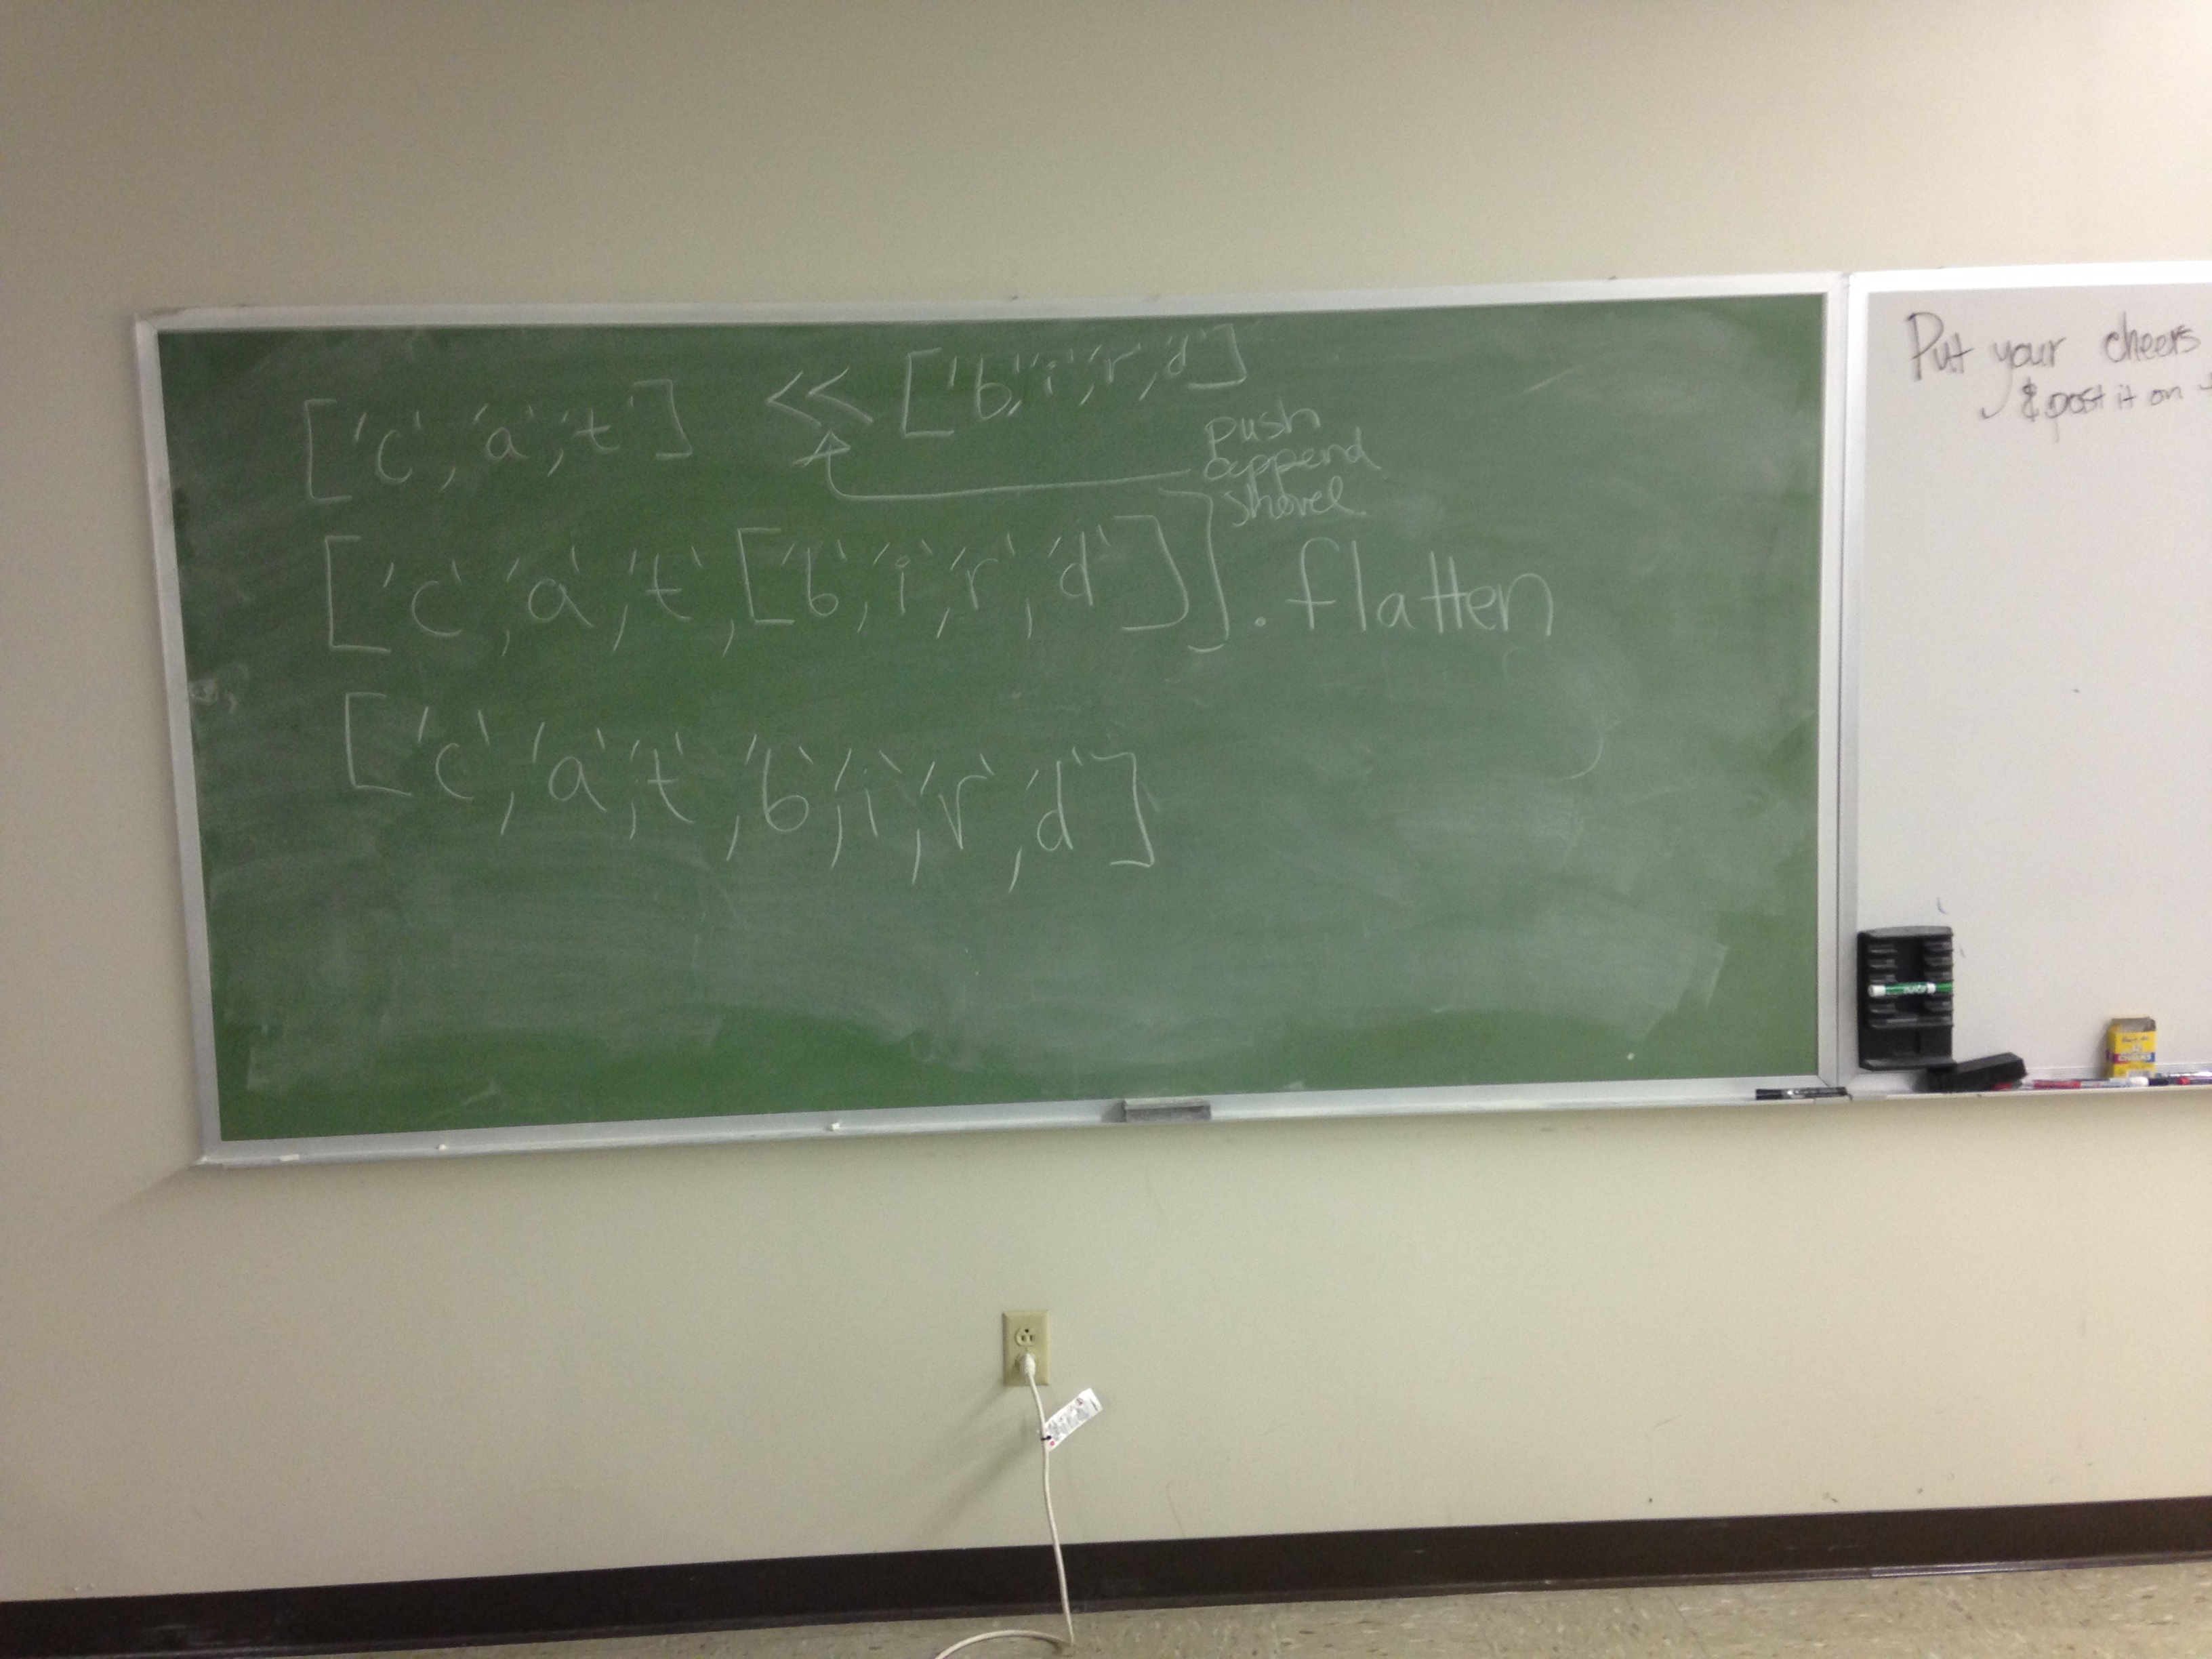 ['c','a','t'] << ['b','i','r','d']
push
append
shovel
['c','a','t',['b','i','r','d']].flatten
['c','a','t','b','i','r','d']
Put your cheers
& post it on